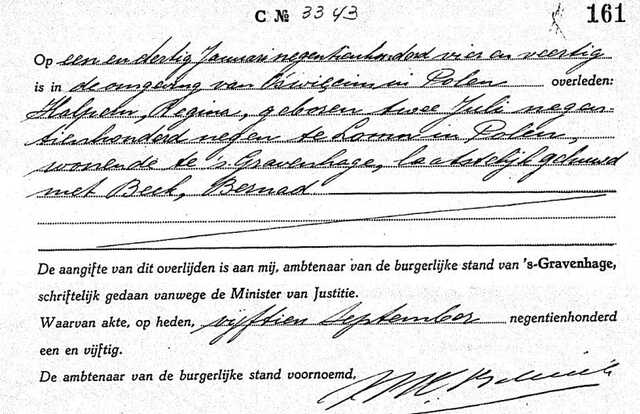 C № 3343
161
Op een en dertig Januari negentienhonderd vier en veertig
is in de omgeving van Oświęcim in Polen overleden:
Halpern, Regina, geboren twee Juli negen
tienhonderd negen te in Polen,
wonende te 's Gravenhage, laatstelijk gehuwd
met Beck, Bernad
De aangifte van dit overlijden is aan mij, ambtenaar van de burgerlijke stand van 's-Gravenhage,
schriftelijk gedaan vanwege de Minister van Justitie.
Waarvan akte, op heden, vijftien September negentienhonderd
een en vijftig.
De ambtenaar van de burgerlijke stand voornoemd,